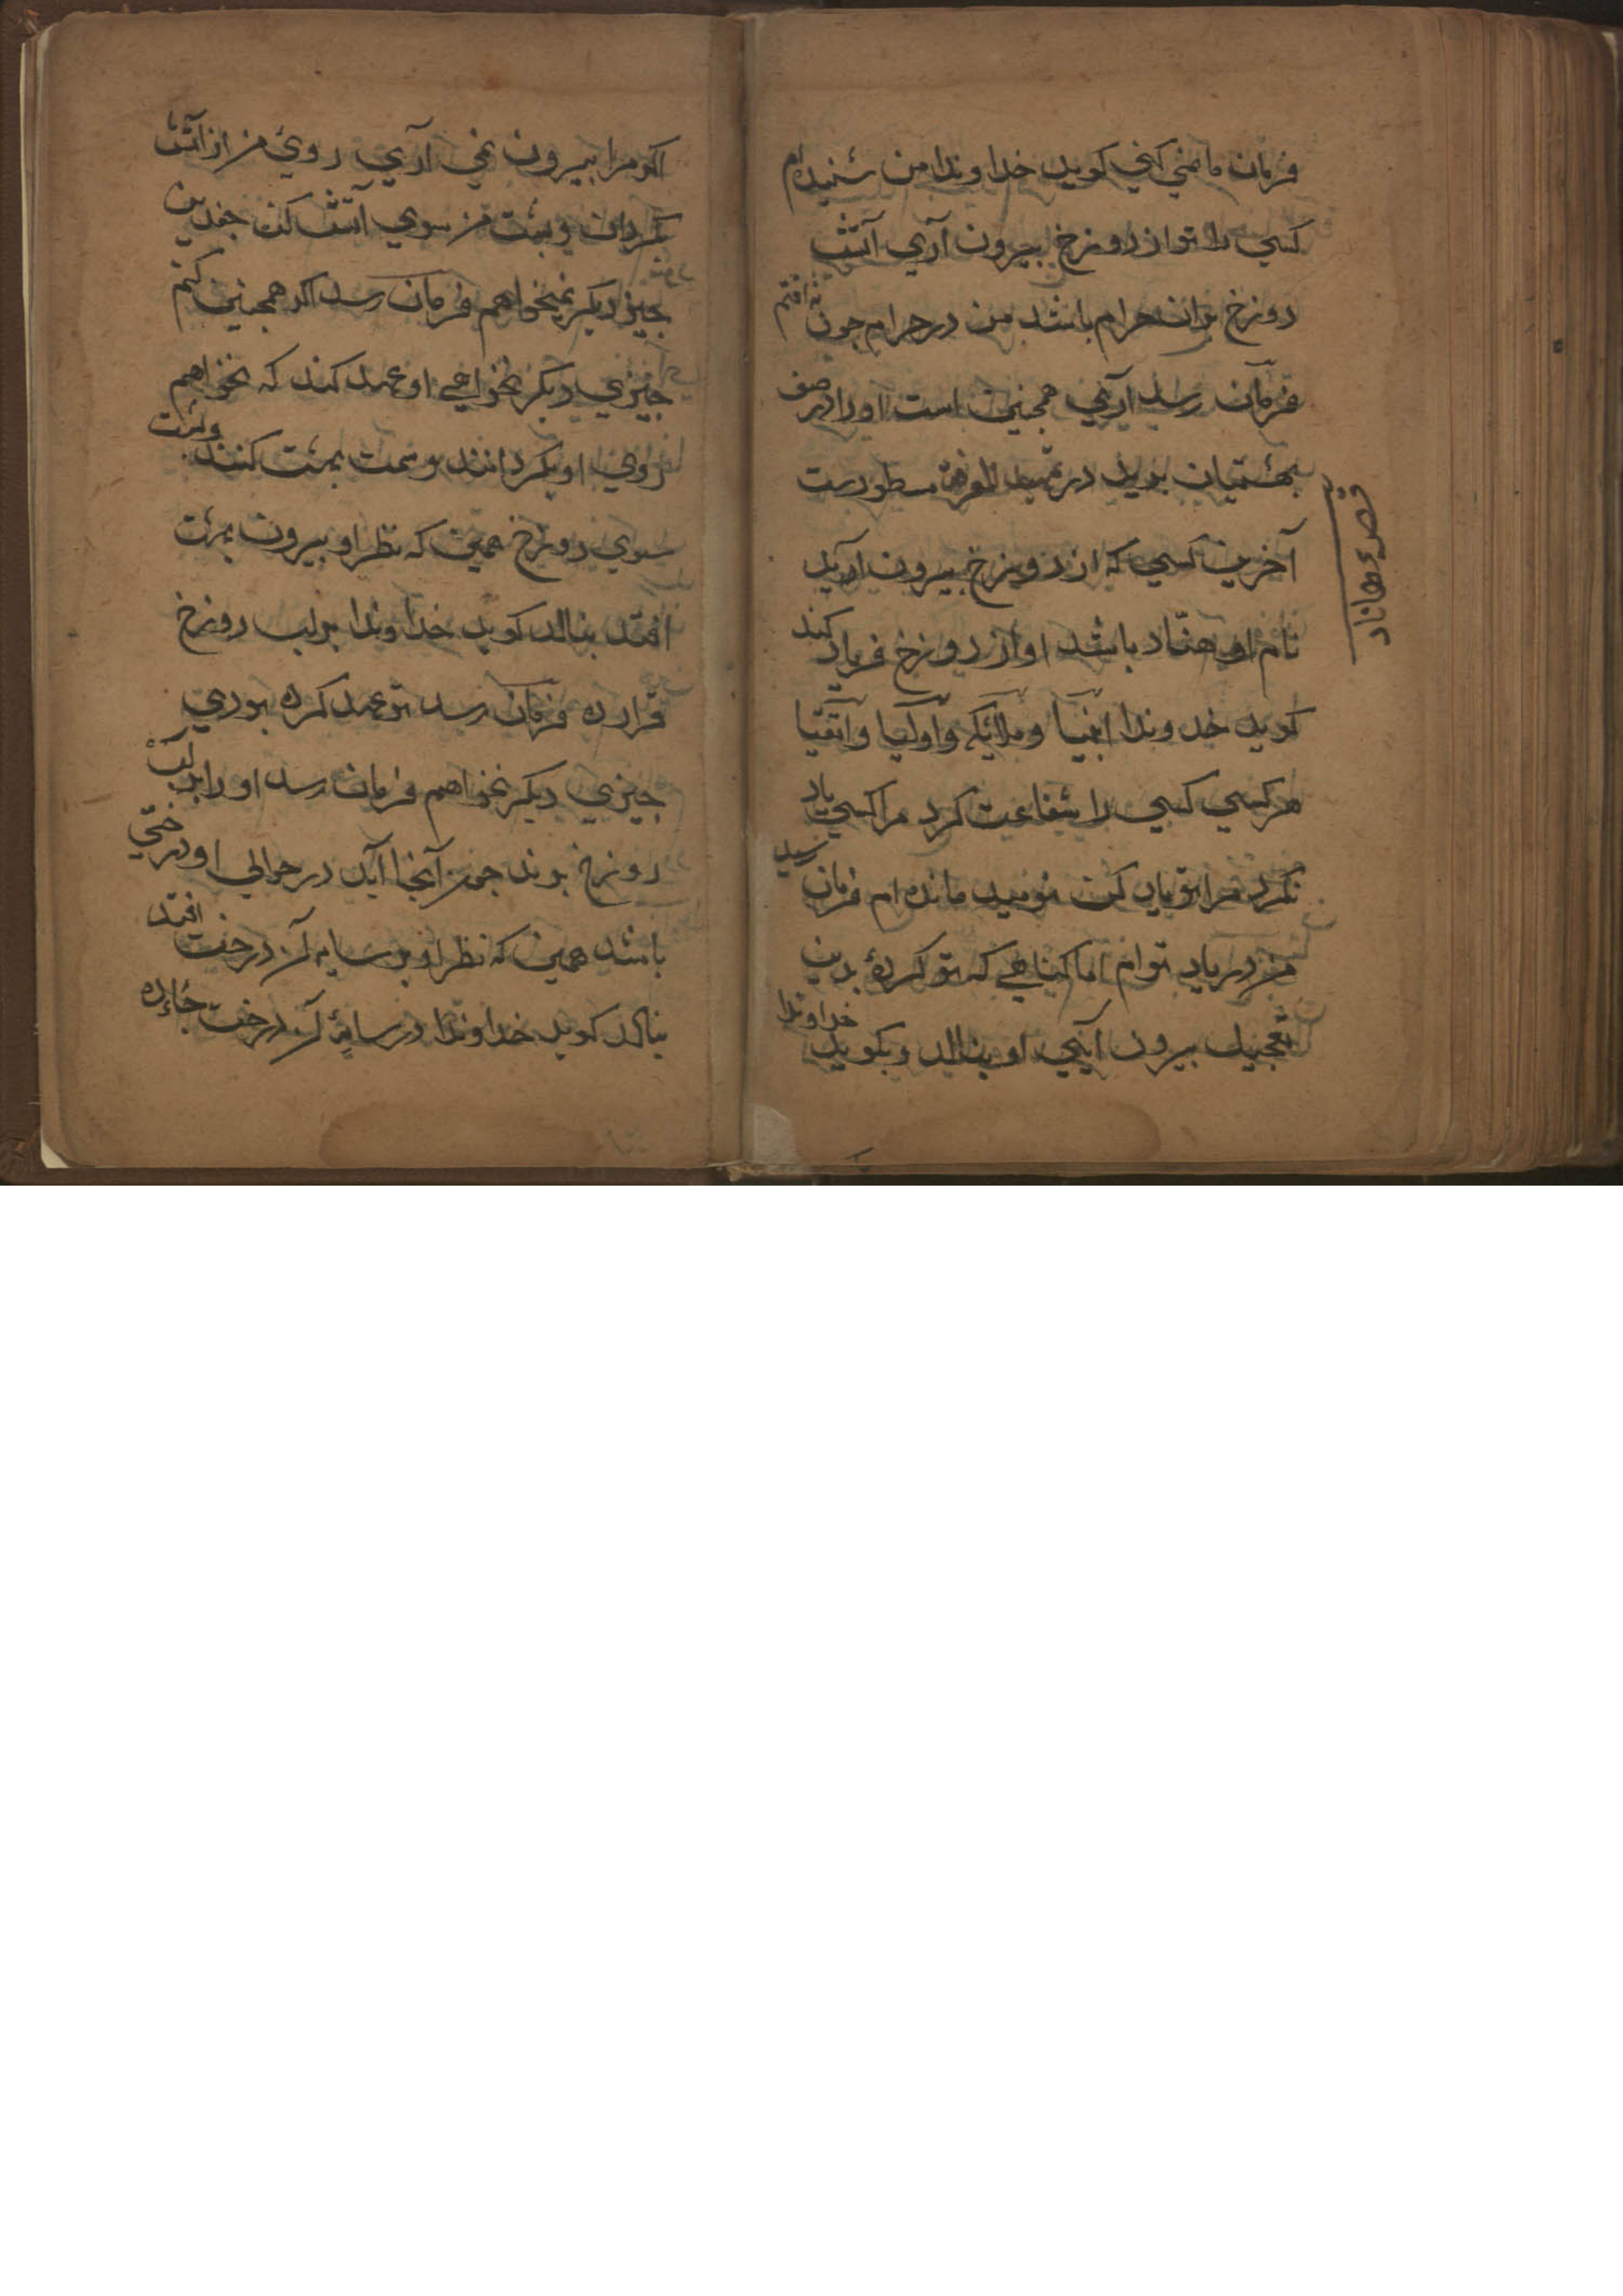 فرمان ما نمي كني كويد خداوندا من شنيده ام
كسي را تو از دوزخ بيرون آري آتش
دوزخ بران حرام باشد من در حرام چون نه افتم
فرمان رسد آري همچنين است او را در صف
بهشتيان بريد در تمهيد المعرفة مسطورست
آخرين كسي كه از دوزخ بيرون آيد
نام او هناد باشد او از دوزخ فرياد كند
كويد خداوندا انبيا و ملائكه و اوليا و اتقيا
هر كسي كسي را شفاعت كرد مرا كسي ياد
نكرد مرا تو ياد كن نوميد مانده ام فرمان رسيد
من در ياد توام اما كناهي كه تو كردهٔ بدين
تعجيل بيرون آيي او بنالد و بكويد خداوندا
قصهٔ هناد
اكر مرا بيرون نمي آري روي من از آتش
بكردان و پشت من سوي آتش كن جز اين
چيز ديكر نميخواهم فرمان رسد اكر همچنين كنم
چيزي ديكر نخواهي او عهد كند كه نخواهم
روي او بكردانند و سمت بهشت كنند و پشت
سوي دوزخ همين كه نظر او بيرون بهشت
افتد بنالد كويد خداوندا بر لب دوزخ
قرار ده فرمان رسد تو عهد كرده بودي
چيزي ديكر نخواهم فرمان رسد او را بر لب
دوزخ برند چون آنجا آيد در حوالي او درختي
باشد همين كه نظر او بر سايه آن درخت افتد
بنالد كويد خداوندا در سايهٔ آن درخت جاي ده